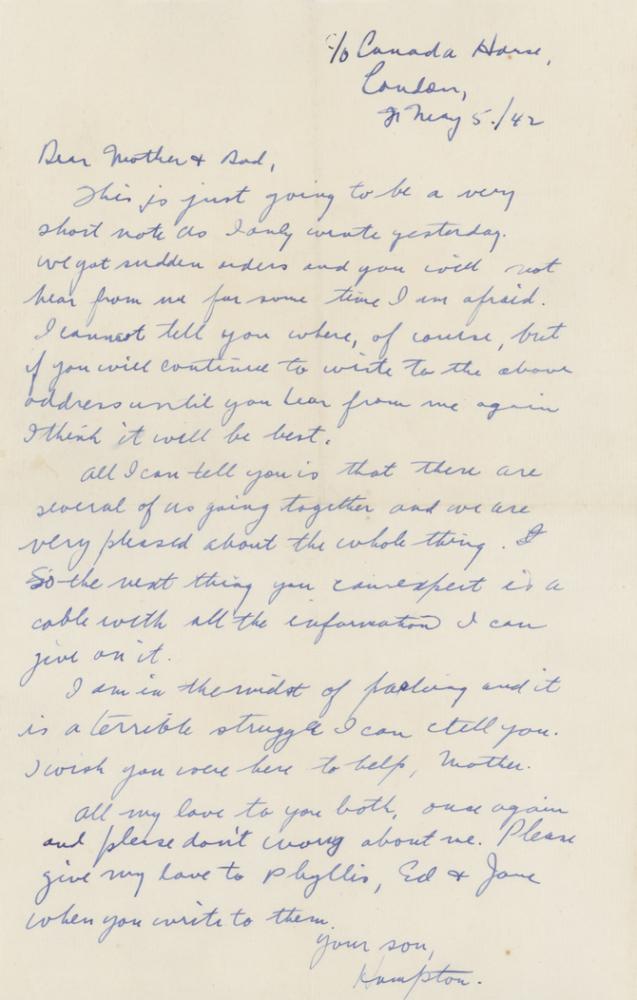 c/o Canada House,
London,
May 5./42
Dear Mother & Dad,
This is just going to be a very
short note as I only wrote yesterday.
We got sudden orders and you will not
hear from me for some time I am afraid.
I cannot tell you where, of course, but
if you will continue to write to the above
address until you hear from me again
I think it will be best.
All I can tell you is that there are
several of us going together and we are
very pleased about the whole thing. I
So the next thing you can expect is a
cable with all the information I can
give on it.
I am in the midst of packing and it
is a terrible struggle I can tell you.
I wish you were here to help, Mother.
All my love to you both, once again
and please don't worry about me. Please
give my love to Phyllis, Ed & Jane
when you write to them.
Your son,
Hampton.